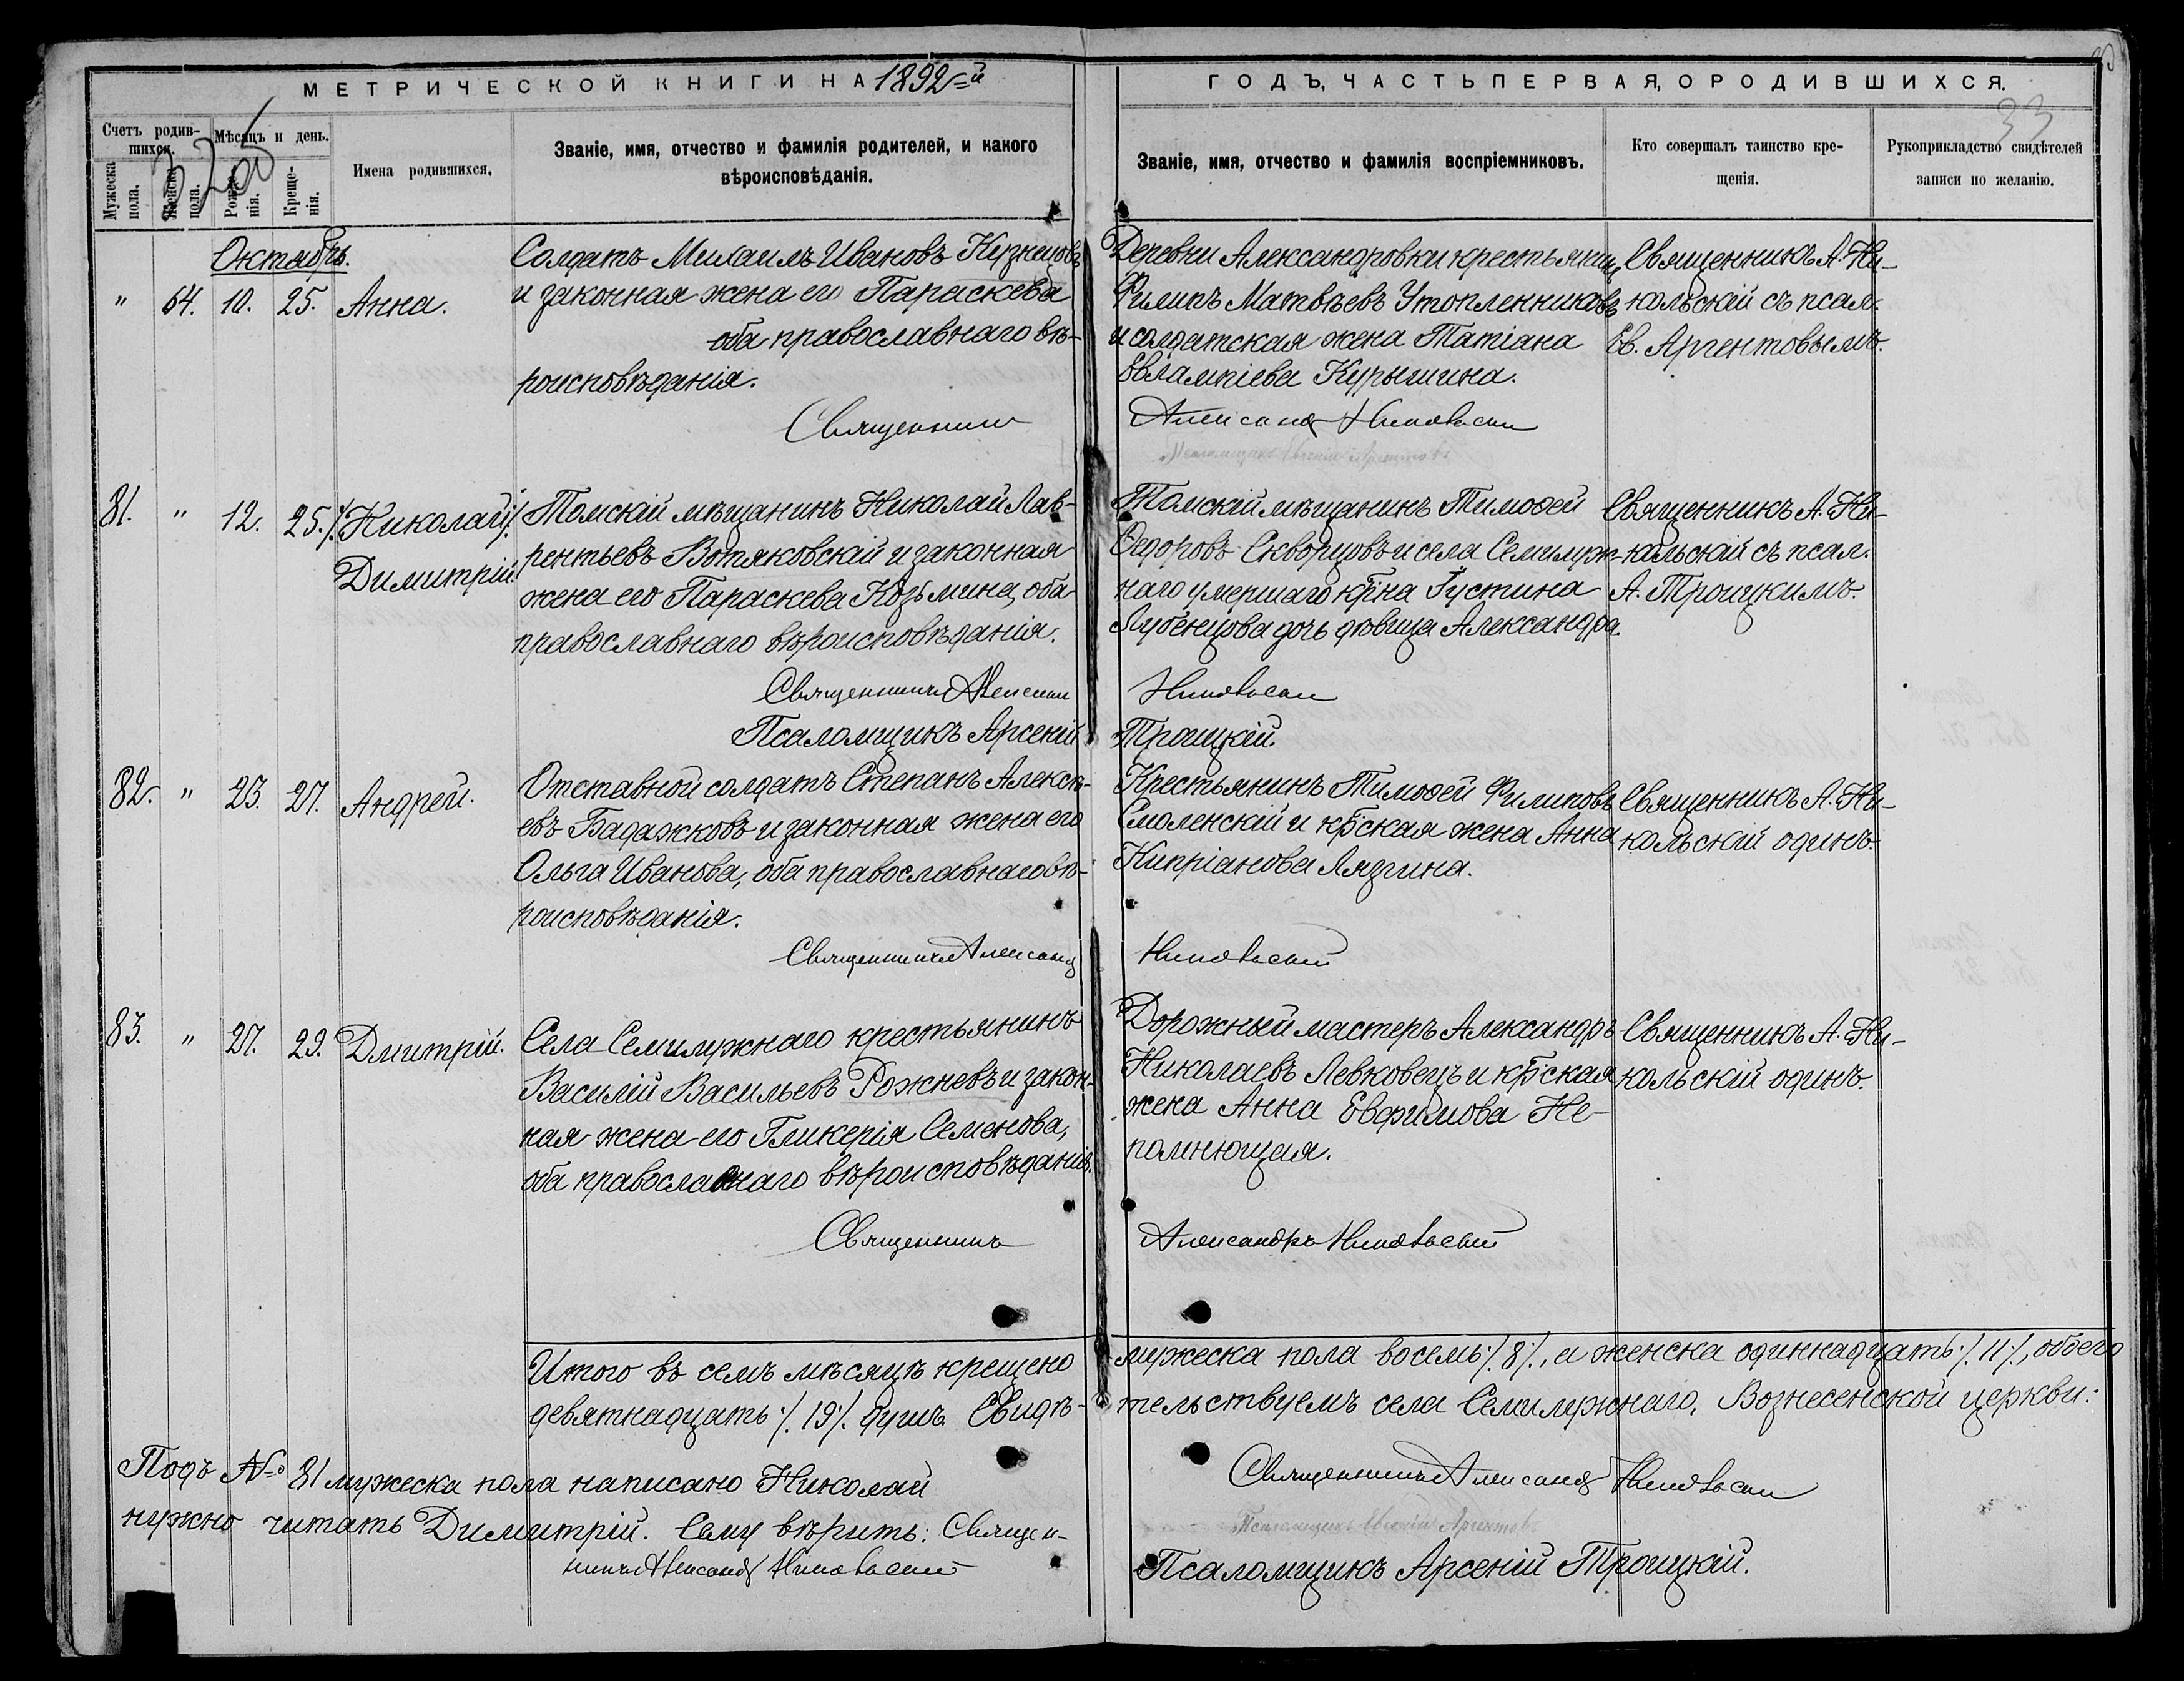 МЕТРИЧЕСКОЙ КНИГИ НА 1892-й
ГОДЪ, ЧАСТЬ ПЕРВАЯ, О РОДИВШИХСЯ.
33
Счетъ родив-
шихся.
Мѣсяцъ и день.
Мужеска
пола.
Женска
пола.
Рожде-
нія.
Креще-
нія.
Имена родившихся.
Званіе, имя, отчество и фамилія родителей, и какого
вѣроисповѣданія.
Званіе, имя, отчество и фамилія воспріемниковъ.
Кто совершалъ таинство кре-
щенія.
Рукоприкладство свидѣтелей
записи по желанію.
Октябрь.
" 64. 10. 25. Анна.
Солдатъ Михаилъ Ивановъ Кузнецовъ
и законная жена его Параскева
оба православнаго вѣ-
роисповѣданія.
Деревни Александровки крестьянинъ
Филипъ Матвѣевъ Утопленниковъ
и солдатская жена Татіана
Евлампіева Курышина.
Священникъ А. Ни-
кольскій съ псал.
Ев. Аргентовымъ.
Священникъ Александръ Никольскій
Псаломщикъ Евгеній Аргентовъ
81. " 12. 25. ./.Николай./.
Димитрій.
Томскій мѣщанинъ Николай Лав-
рентьевъ Вотяковскій и законная
жена его Параскева Козьмина, оба
православнаго вѣроисповѣданія.
Томскій мѣщанинъ Тимоѳей
Ѳедоровъ Скворцовъ и села Семилуж-
наго умершаго кр̃на Іустина
Лубенцова дочь дѣвица Александра.
Священникъ А. Ни-
кольскій съ псал.
А. Троицкимъ.
Священникъ Александръ Никольскій
Псаломщикъ Арсеній Троицкій.
82. " 23. 27. Андрей.
Отставной солдатъ Степанъ Алексѣ-
евъ Бадажковъ и законная жена его
Ольга Иванова, оба православнаго вѣ-
роисповѣданія.
Крестьянинъ Тимоѳей Филиповъ
Смоленскій и кр̃ская жена Анна
Кипріанова Лязгина.
Священникъ А. Ни-
кольскій одинъ.
Священникъ Александръ Никольскій
83. " 27. 29. Дмитрій.
Села Семилужнаго крестьянинъ
Василій Васильевъ Рожневъ и закон-
ная жена его Гликерія Семенова,
оба православнаго вѣроисповѣданія.
Дорожный мастеръ Александръ
Николаевъ Левковецъ и кр̃ская
жена Анна Евфимова Не-
помнющая.
Священникъ А. Ни-
кольскій одинъ.
Священникъ Александръ Никольскій
Итого въ семъ мѣсяцѣ крещено мужеска пола восемь ./. 8 ./., а женска одиннадцать ./. 11 ./., обоего
девятнадцать ./. 19 ./. душъ. Свидѣ-тельствуемъ села Семилужнаго, Вознесенской церкви:
Священникъ Александръ Никольскій
Псаломщикъ Евгеній Аргентовъ
Псаломщикъ Арсеній Троицкій.
Подъ № 81 мужеска пола написано Николай
нужно читать Димитрій. Сему вѣрить: Священ-
никъ Александръ Никольскій